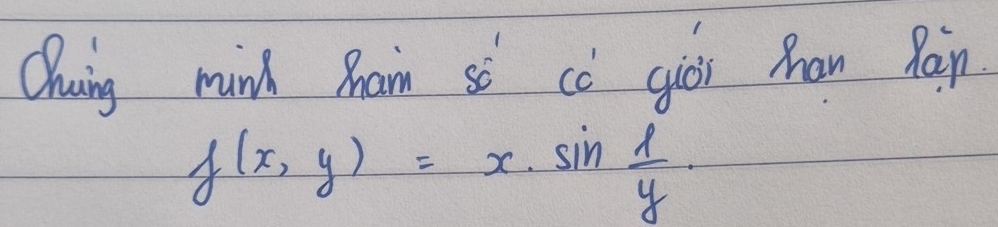 Chứng minh hàm số có giới hạn lặp.
f(x, y) = x. sin 1/y.